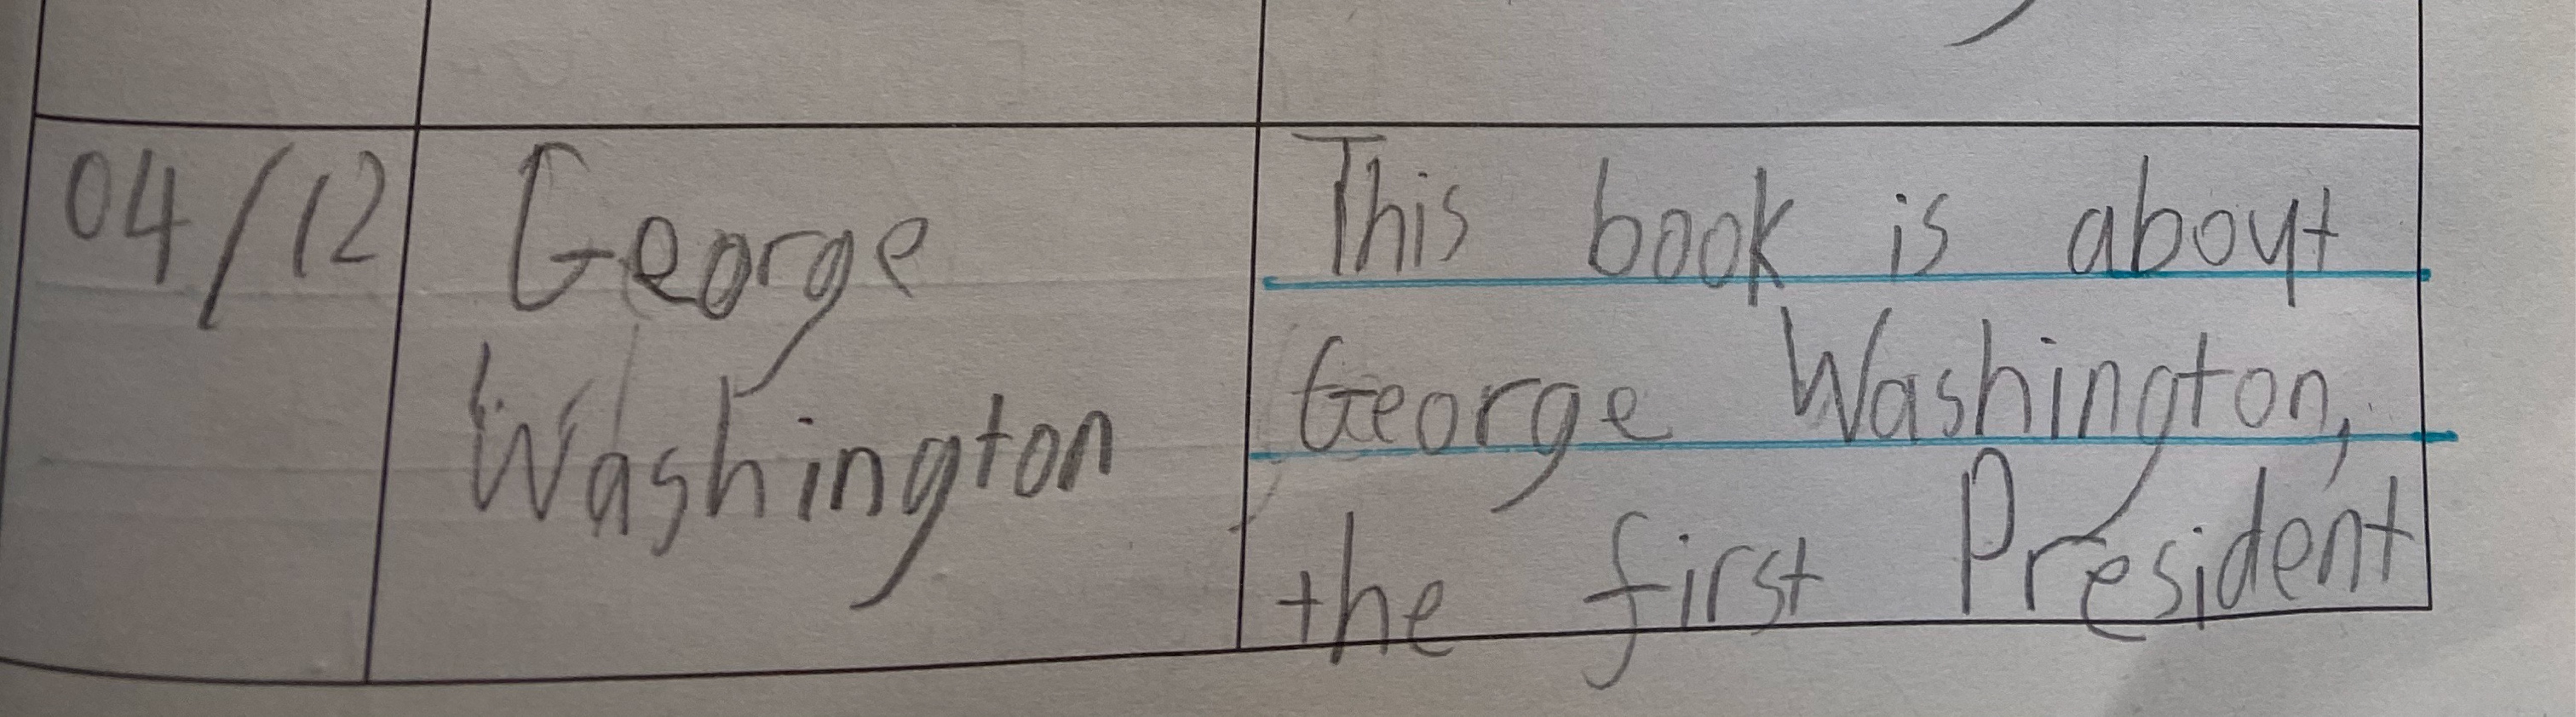 04/12
George
Washington
This book is about
George Washington,
the first President